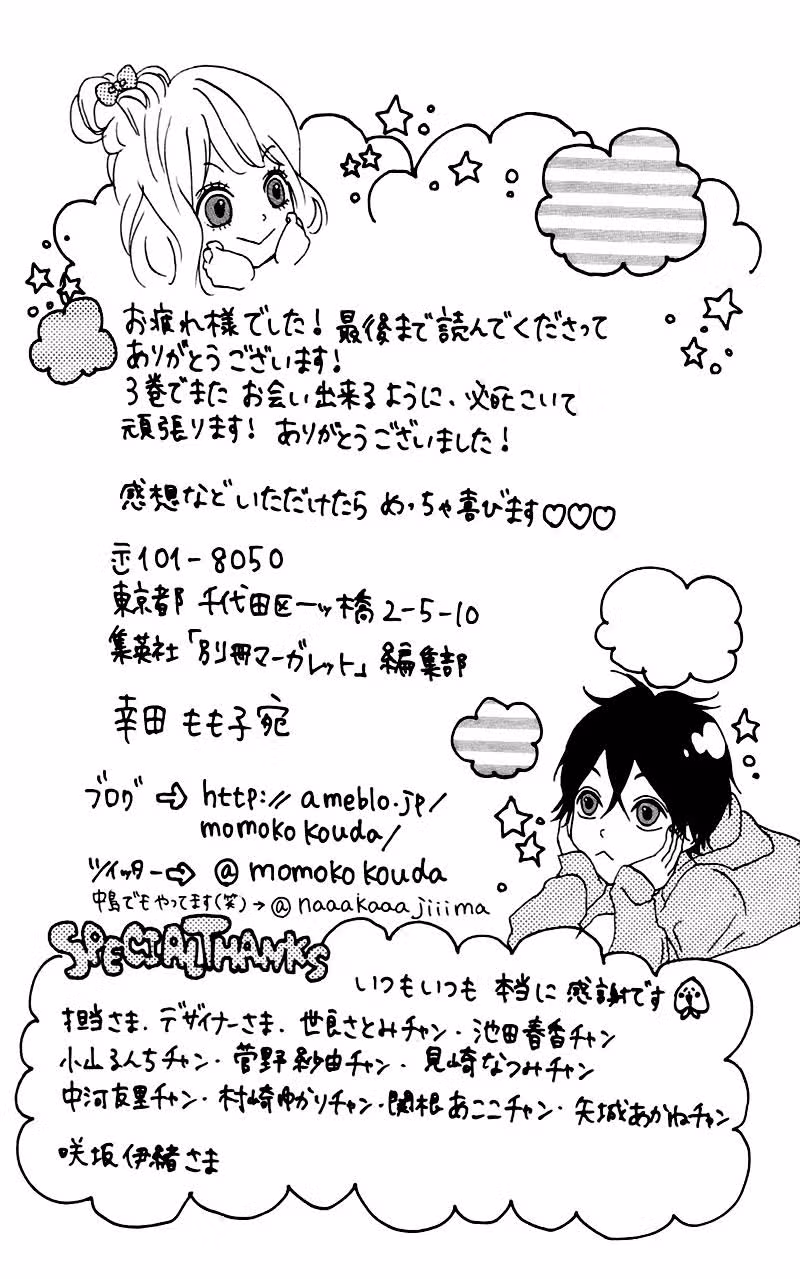 お疲れ様でした！最後まで読んでくださって
ありがとうございます！
3巻でまた お会い出来るように、必死こいて
頑張ります！ ありがとうございました！
感想などいただけたら めっちゃ喜びます♡♡♡
〒101-8050
東京都 千代田区一ッ橋2-5-10
集英社「別冊マーガレット」編集部
幸田 もも子宛
ブログ ⇨ http://ameblo.jp/
momokokouda/
ツイッター⇨ @momokokouda
中島でもやってます(笑)→@naaakaaajiiima
SPECIAL THANKS
いつもいつも 本当に 感謝です
担当さま. デザイナーさま. 世良さとみチャン・池田春香チャン
小山るんちチャン・菅野紗由チャン・見崎なつみチャン
中河友里チャン・村崎ゆかりチャン・関根あここチャン・矢城あかねチャン
咲坂伊緒さま